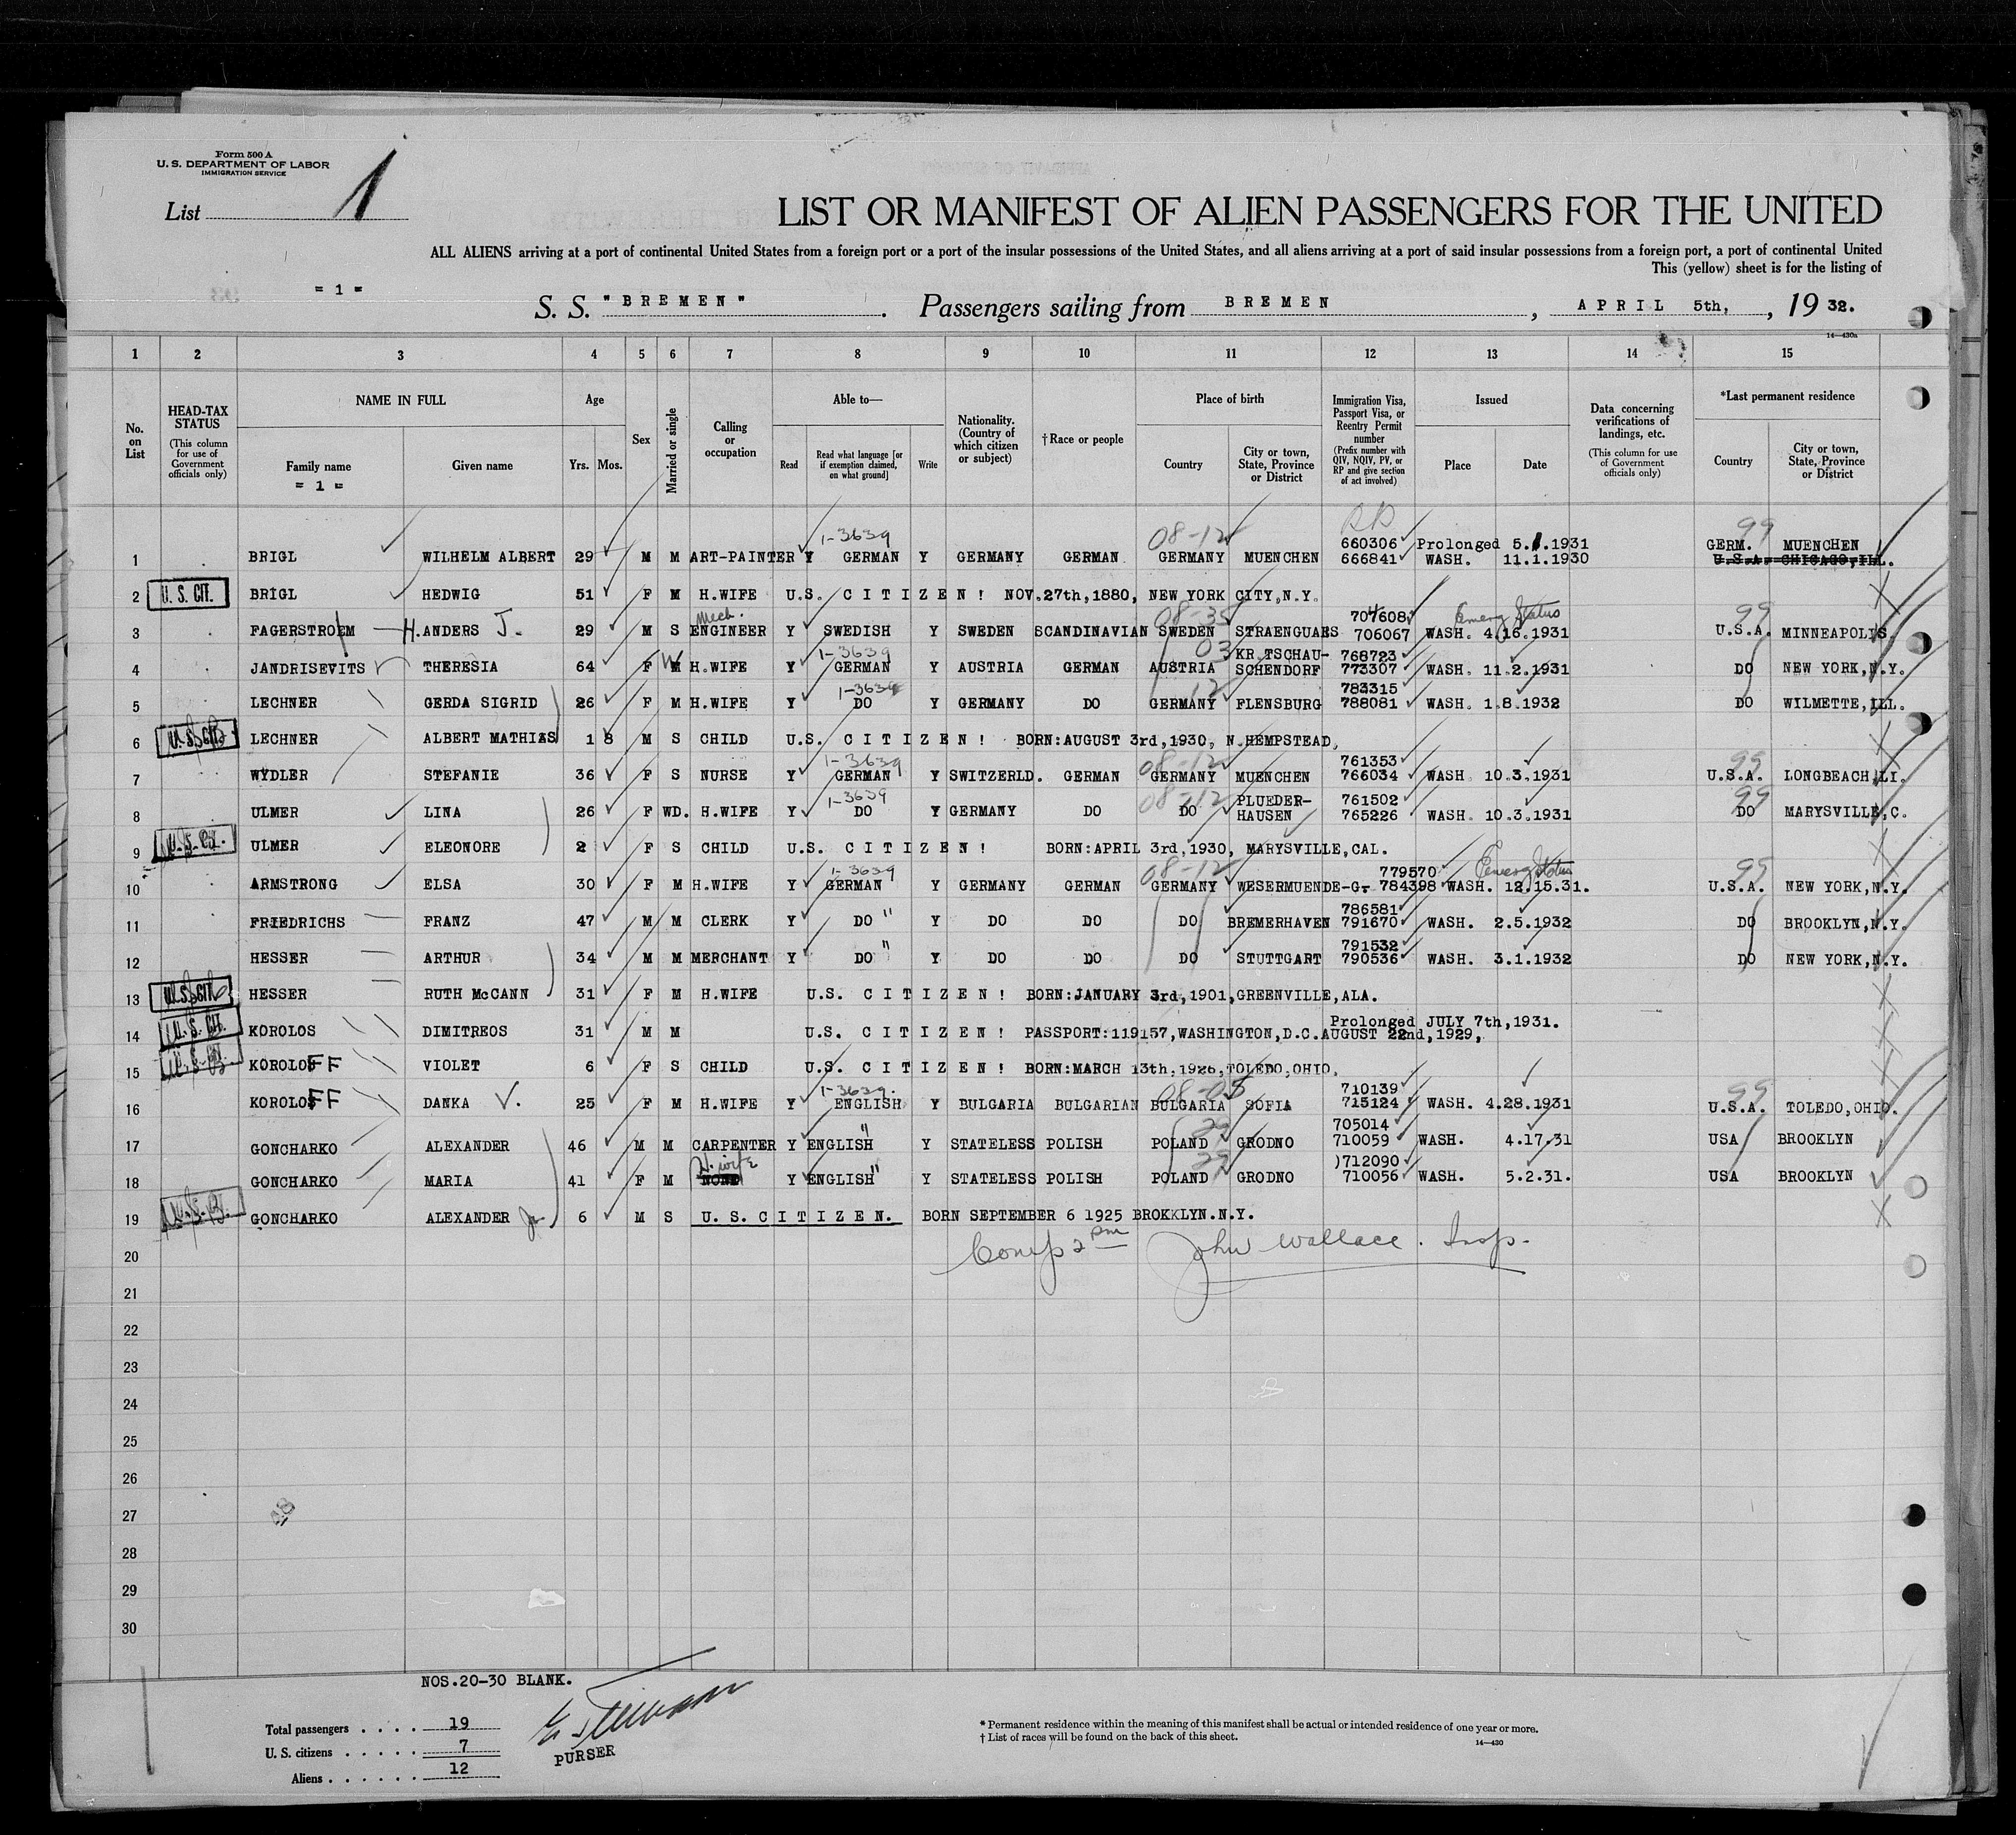 Form 500 A
U. S. DEPARTMENT OF LABOR
IMMIGRATION SERVICE
List 1
LIST OR MANIFEST OF ALIEN PASSENGERS FOR THE UNITED
ALL ALIENS arriving at a port of continental United States from a foreign port or a port of the insular possessions of the United States, and all aliens arriving at a port of said insular possessions from a foreign port, a port of continental United
This (yellow) sheet is for the listing of
= 1 =
S. S. "BREMEN". Passengers sailing from BREMEN, APRIL 5th, , 19 32.
14—430a
1 2 3 4 5 6 7 8 9 10 11 12 13 14 15
No. on List
HEAD-TAX STATUS (This column for use of Government officials only)
NAME IN FULL
Family name = 1 =
Given name
Age
Yrs. Mos.
Sex
Married or single
Calling or occupation
Able to—
Read
Read what language [or if exemption claimed, on what ground]
Write
Nationality. (Country of which citizen or subject)
†Race or people
Place of birth
Country
City or town, State, Province or District
Immigration Visa, Passport Visa, or Reentry Permit number (Prefix number with QIV, NQIV, PV, or RP and give section of act involved)
Issued
Place
Date
Data concerning verifications of landings, etc. (This column for use of Government officials only)
*Last permanent residence
Country
City or town, State, Province or District
1-3639 08-12 99
660306 Prolonged 5.1.1931 GERM. MUENCHEN
1 BRIGL WILHELM ALBERT 29 M M ART-PAINTER Y GERMAN Y GERMANY GERMAN GERMANY MUENCHEN 666841 WASH. 11.1.1930 U.S.A. CHICAGO,ILL.
2 U. S. CIT. BRIGL HEDWIG 51 F M H.WIFE U.S. CITIZEN! NOV.27th,1880, NEW YORK CITY,N.Y.
Mech. 08-35 707608 Emerg Status 99
3 FAGERSTROEM H. ANDERS J. 29 M S ENGINEER Y SWEDISH Y SWEDEN SCANDINAVIAN SWEDEN STRAENGUAES 706067 WASH. 4.16.1931 U.S.A. MINNEAPOLIS.
1-3639 03 KR.TSCHAU- 768723
4 JANDRISEVITS THERESIA 64 F M W H.WIFE Y GERMAN Y AUSTRIA GERMAN AUSTRIA SCHENDORF 773307 WASH. 11.2.1931 DO NEW YORK,N.Y.
1-3639 12 783315
5 LECHNER GERDA SIGRID 26 F M H.WIFE Y DO Y GERMANY DO GERMANY FLENSBURG 788081 WASH. 1.8.1932 DO WILMETTE,ILL.
6 U.S.CIT. LECHNER ALBERT MATHIAS 1 8 M S CHILD U.S. CITIZEN! BORN:AUGUST 3rd,1930, N.HEMPSTEAD,
1-3639 08-12 761353 99
7 WYDLER STEFANIE 36 F S NURSE Y GERMAN Y SWITZERLD. GERMAN GERMANY MUENCHEN 766034 WASH. 10.3.1931 U.S.A. LONGBEACH,LI.
1-3639 08-12 PLUEDER- 761502 99
8 ULMER LINA 26 F WD. H.WIFE Y DO Y GERMANY DO DO HAUSEN 765226 WASH. 10.3.1931 DO MARYSVILLE,C.
9 U.S.CIT. ULMER ELEONORE 2 F S CHILD U.S. CITIZEN! BORN:APRIL 3rd,1930, MARYSVILLE,CAL.
1-3639 08-12 779570 Emerg Status 99
10 ARMSTRONG ELSA 30 F M H.WIFE Y GERMAN Y GERMANY GERMAN GERMANY WESERMUENDE-G. 784398 WASH. 12.15.31. U.S.A. NEW YORK,N.Y.
786581
11 FRIEDRICHS FRANZ 47 M M CLERK Y DO " Y DO DO DO BREMERHAVEN 791670 WASH. 2.5.1932 DO BROOKLYN,N.Y.
791532
12 HESSER ARTHUR 34 M M MERCHANT Y DO " Y DO DO DO STUTTGART 790536 WASH. 3.1.1932 DO NEW YORK,N.Y.
13 U.S.CIT. HESSER RUTH McCANN 31 F M H.WIFE U.S. CITIZEN! BORN:JANUARY 3rd,1901,GREENVILLE,ALA.
Prolonged JULY 7th,1931.
14 U.S.CIT. KOROLOS DIMITREOS 31 M M U.S. CITIZEN! PASSPORT:119157,WASHINGTON,D.C.AUGUST 22nd,1929,
15 U.S.CIT. KOROLOFF VIOLET 6 F S CHILD U.S. CITIZEN! BORN:MARCH 13th,1926,TOLEDO,OHIO,
1-3639. 08-05 710139 99
16 KOROLOFF DANKA V. 25 F M H.WIFE Y ENGLISH Y BULGARIA BULGARIAN BULGARIA SOFIA 715124 WASH. 4.28.1931 U.S.A. TOLEDO,OHIO.
29 705014
17 GONCHARKO ALEXANDER 46 M M CARPENTER Y ENGLISH " Y STATELESS POLISH POLAND GRODNO 710059 WASH. 4.17.31 USA BROOKLYN
H. wife 29 )712090
18 GONCHARKO MARIA 41 F M NONE Y ENGLISH " Y STATELESS POLISH POLAND GRODNO 710056 WASH. 5.2.31. USA BROOKLYN
19 U.S.CIT. GONCHARKO ALEXANDER Jr 6 M S U.S.CITIZEN. BORN SEPTEMBER 6 1925 BROKKLYN.N.Y.
20 Comp 2 pm John Wallace. Insp.
21
22
23
24
25
26
27
28
29
30
NOS.20-30 BLANK.
Total passengers . . . . 19
U. S. citizens . . . . . 7
Aliens . . . . . . 12
PURSER
* Permanent residence within the meaning of this manifest shall be actual or intended residence of one year or more.
† List of races will be found on the back of this sheet.
14—430